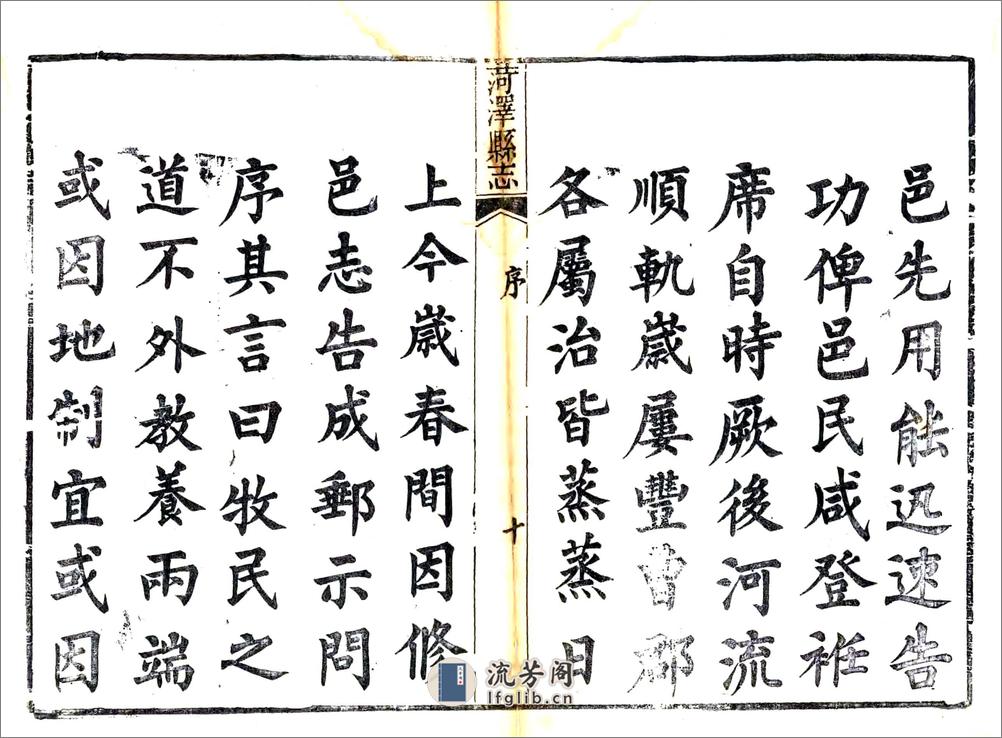 邑先用能迅速告
功俾邑民咸登袵
席自時厥後河流
順軌歲屢豐曹郡
各屬治皆蒸蒸日
菏澤縣志
序
十
上今歲春間因修
邑志告成郵示問
序其言曰牧民之
道不外教養兩端
或因地制宜或因
流芳阁
lfglib.cn